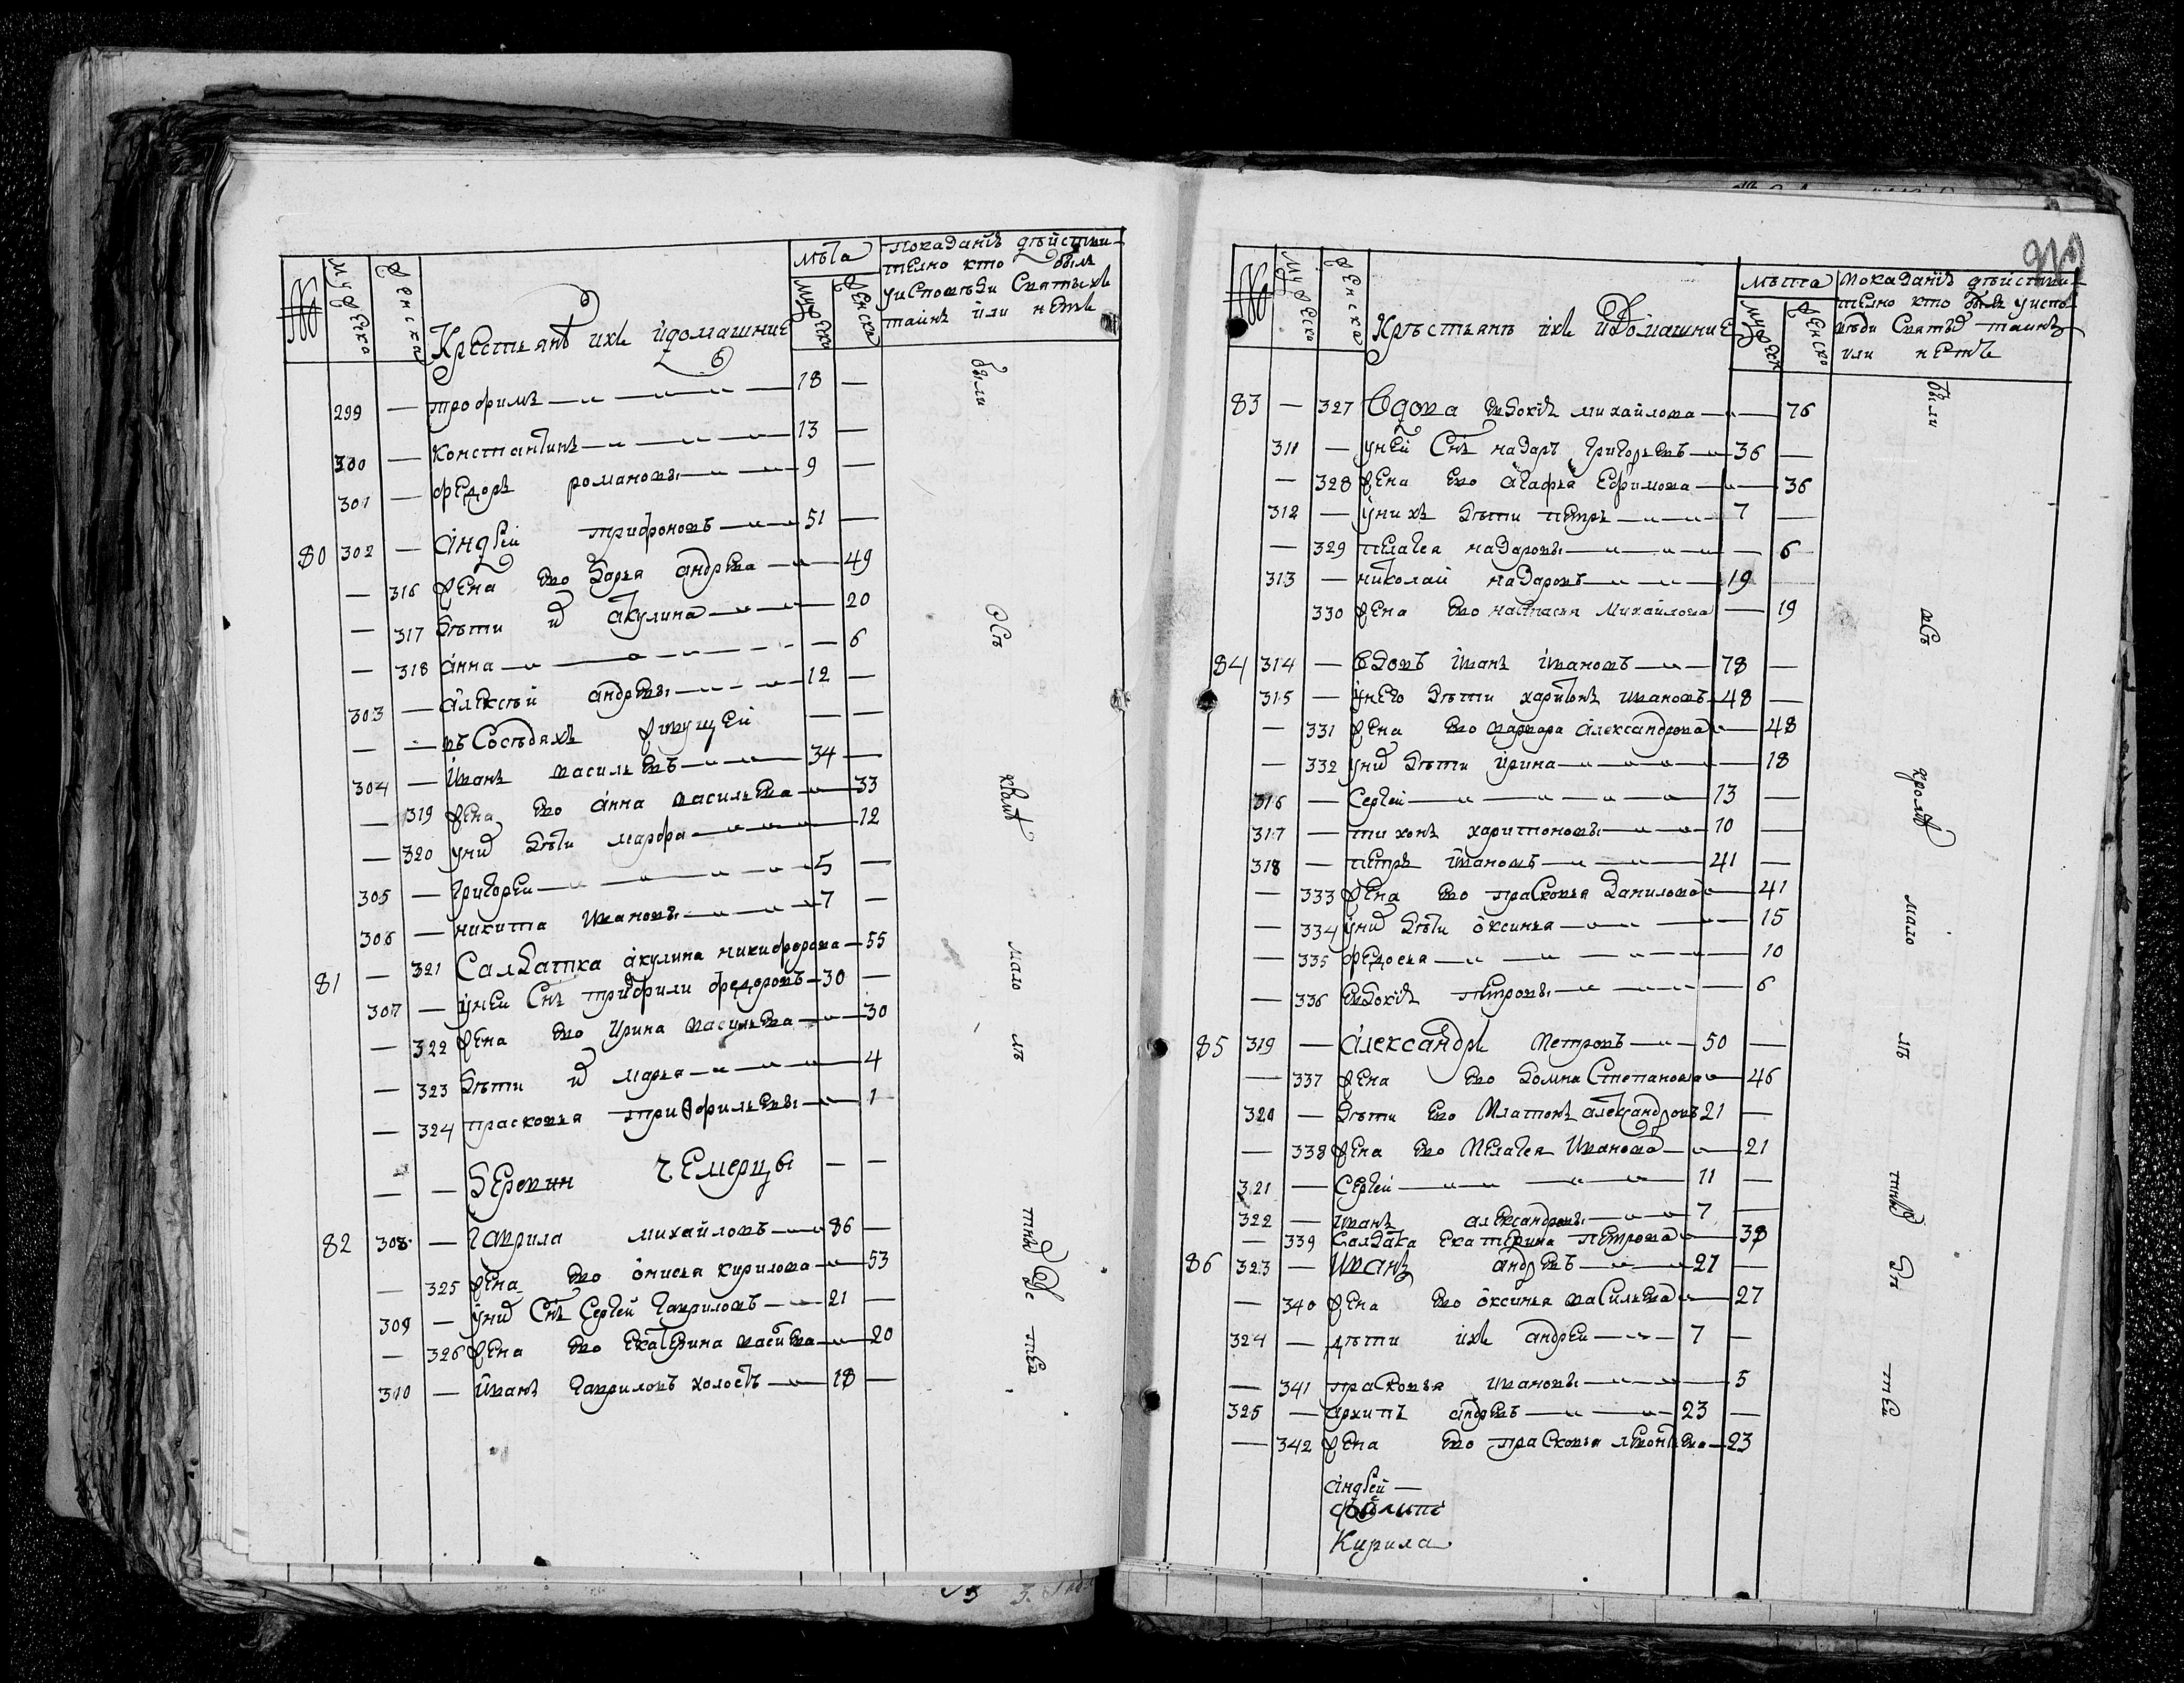 мужеска
женска
Крестьянъ ихъ и домашние
лѣта
мужеска
женска
показаніе дѣйстви-
телно кто былъ
у исповѣди святыхъ
таинъ или нетъ
299 — трофимъ — 18 —
300 — константинъ — 13 —
301 — федоръ романовы — 9 —
80 302 — андрей трифоновъ — 51 —
— 316 жена ево дарья андрева — 49
— 317 дѣти их акулина — 20
— 318 анна — — 6
303 — алексѣй андревы — 12 —
— — въ сосѣдяхъ живущей — —
304 — иванъ васильевъ — 34 —
— 319 жена ево анна васильева — 33
— 320 у них дѣти марфа — 12
305 — григореи — 5 —
306 — никита ивановы — 7 —
81 — 321 салдатка акулина никифорова — 55
307 — у неи снъ трифили федоровъ — 30 —
— 322 жена ево ирина васильева — 30
— 323 дѣти их марья — 4
— 324 прасковья трифильевы — 1
— — деревни чемерцы — —
82 308 — гаврила михайловъ — 86 —
— 325 жена ево онисья кирилова — 53
309 — у них снъ сергей гавриловъ — 21 —
— 326 жена ево екатерина васильева — 20
310 — иванъ гавриловъ холостъ — 18 —
были
всѣ
мало
лѣ
тних
тей
мужеска
женска
Крѣстьянъ ихъ и домашние
лѣта
мужеска
женско
показаніе дѣйстви-
телно кто былъ у испо-
вѣди святых таинъ
или нетъ
83 — 327 вдова евдокіѣ михайлова — 76
311 — у ней снъ назаръ григорьевъ — 36 —
— 328 жена ево агафья ефимова — 36
312 — у нихъ дѣти петръ — 7 —
— 329 пелагея назаровы — — 6
313 — николай назаровъ — 19
330 жена ево настасья михайлова — 19
84 314 — вдовъ иванъ ивановъ — 78 —
315 — у него дѣти харитонъ ивановъ — 48 —
— 331 жена ево варвара александрова — 48
— 332 у них дѣти ирина — 18
316 — сергей — 13 —
317 — тихонъ харитоновы — 10 —
318 — петръ ивановъ — 41 —
— 333 жена ево прасковья данилова — 41
— 334 у них дѣти оксинья — 15
— 335 федосья — 10
— 336 евдокіѣ петровы — 6
85 319 — александръ петровъ — 50 —
— 337 жена ево домна степанова — 46
320 — дѣти ево платонъ александровъ 21 —
— 338 жена ево пелагея иванова — 21
321 — сергей — 11 —
322 — иванъ александровы — 7 —
— 339 салдатка екатерина петрова — 38
86 323 — иванъ андревъ — 27 —
— 340 жена ево оксинья васильева — 27
324 — дѣти ихъ андреи — 7 —
— 341 прасковья ивановы — 5
325 — архипъ андревъ — 23 —
— 342 жена ево прасковья леонтьева — 23
андрей —
филипъ
кирила
были
всѣ
кромѣ
мало
лѣ
тних
дѣ
теи